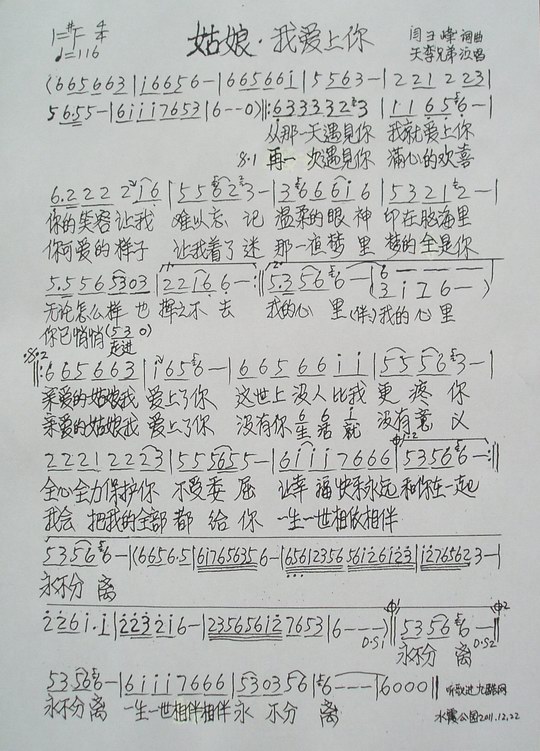 1=#F 4/4
♩=116
姑娘·我爱上你
闫玉峰 词曲
天李兄弟 演唱
(665663|i6656-|665661|5563-|221 223|
5655-|6iii7653|6--0)||:6333323|11656-|
从那一天遇见你 我就爱上你
8.1 再一次遇见你 满心的欢喜
6.222 2i6|556223-|366616|53212-|
你的笑容让我 难以忘记 温柔的眼神 印在脑海里
你可爱的样子 让我着了迷 那一值梦里 梦的全是你
5.5565303|22166-:||5.3566-(6----
3i76-)
无论怎么样也 挥之不去 我的心里(伴)我的心里
你已悄悄(530)
走进
||:665663|i656-|665661i|55563-|
亲爱的姑娘我 爱上了你 这世上没人比我 更疼你
亲爱的姑娘我 爱上了你 没有你生活就 没有意义
2221 2223|555655-|6iii7666|53566-:||
全心全力保护你 不受委屈 让幸福快乐永远和你在一起
我会把我的全部都给你 一生一世相依相伴
53566-|(6656·5|61765635 6-|65612356 56126123|i2765623-|
永不分离
226i.i|22326-|235656127653|6---)||53566-||
D.S1 D.S2
永不分离
53566-|6iii7666|530356|6---|6000||
永不分离 一生一世相伴相伴永不分离
听歌进九酷网
水霞公园2011.12.22